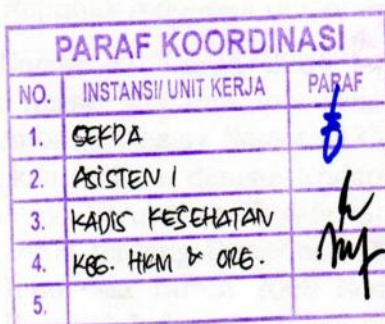 PARAF KOORDINASI
NO. INSTANSI/ UNIT KERJA PARAF
1. SEKDA
2. ASISTEN I
3. KADIS KESEHATAN
4. KBG. HKM & ORG.
5.